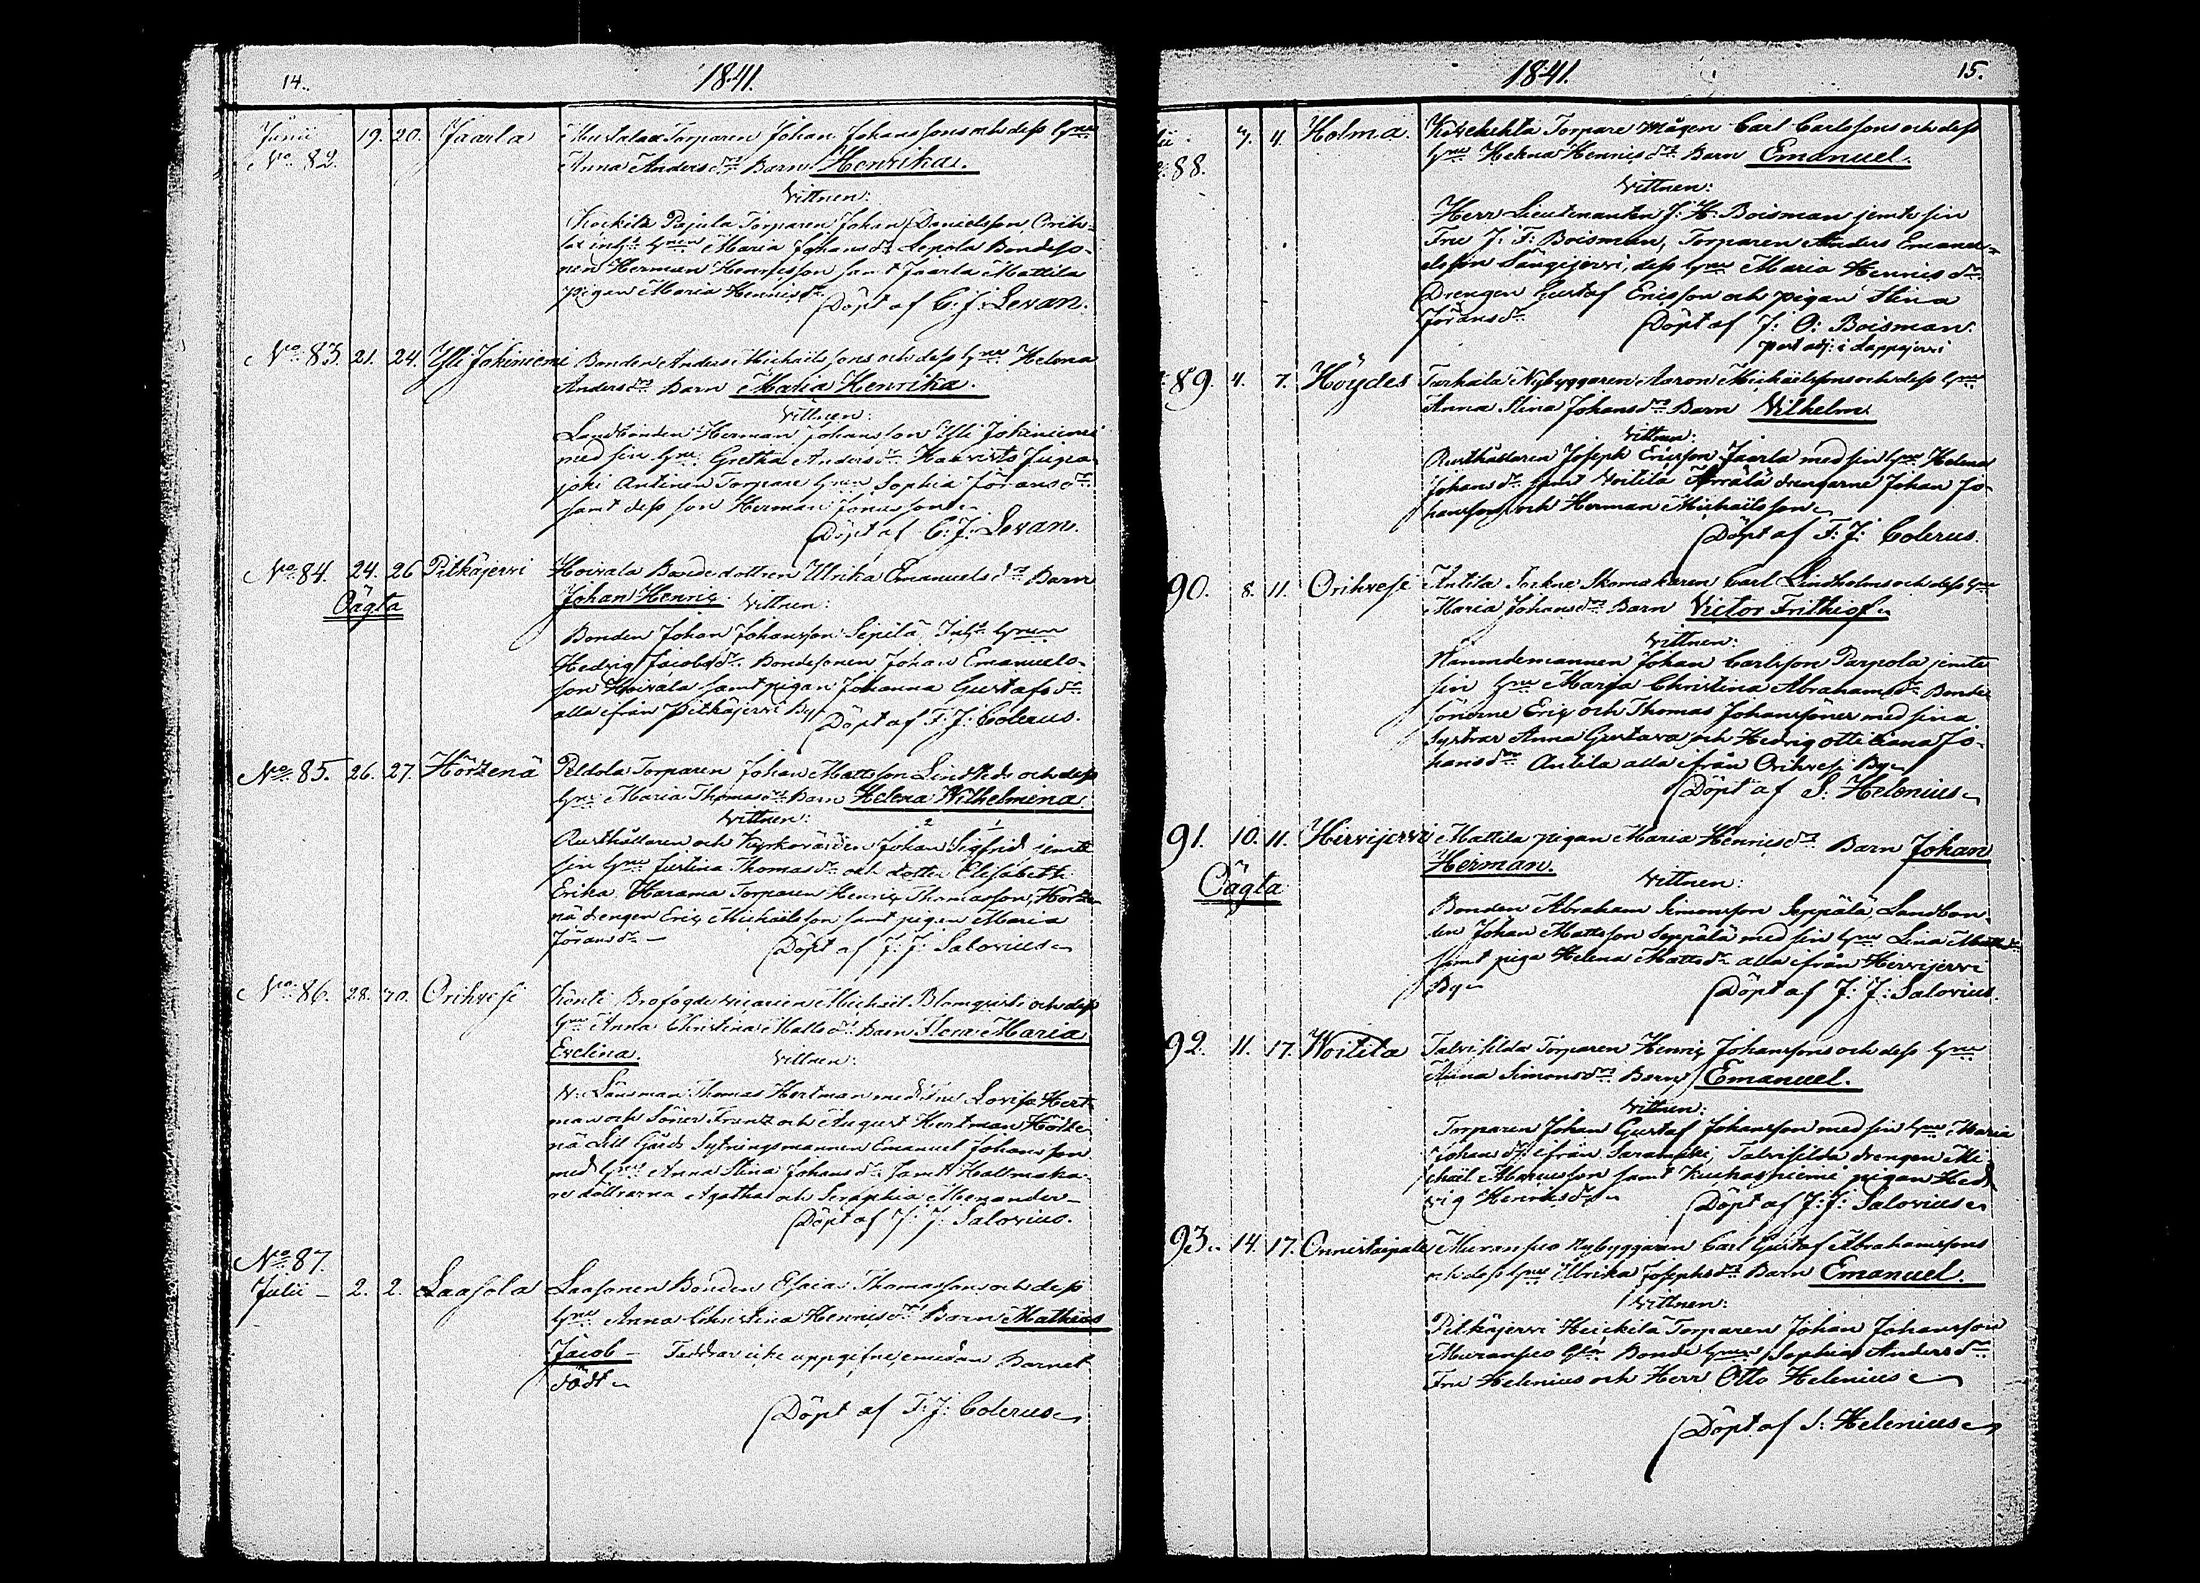 14. 1841.
Junii 19. 20. Jaarla Torparen Johan Johanssons och dess hru
No. 82. Anna Andersdr Barn Henrika.
Vittnen:
Pajula Torparen Johan Danielsson, Orih-
hru Maria Johansdr Lepola Bondeso-
nen Herman Henricsson samt Jaarla Mattila
pigan Maria Henricsdr
Döpt af C: J: Levan.
No. 83. 21. 24. Yli Jokiniemi Bonden Anders Michaelssons och dess hru Helena
Andersdr Barn Maria Henrika.
Vittnen:
Landbonden Herman Johansson Yli Jokiniemi
med sin hru Gretha Andersdr
joki Antinen Torpare hru Sophia Göransdr
samt dess son Herman Jonasson
Döpt af C: J: Levan.
No. 84. 24. 26 Pitkäjervi Hoivala Bonde dottren Ulrika Emanuelsdr Barn
Oägta Johan Henric. Vittnen:
Bonden Johan Johansson Sepilä, Inhs hrun
Hedvig Jacobsdr Bondesonen Johan Emanuels-
son Hoivala samt pigan Johanna Gustafsdr
alla ifrån Pitkäjervi By
Döpt af F: J: Colerus.
No. 85. 26. 27. Hörtzenä Peldola Torparen Johan Mattsson Lindstedts och dess
hru Maria Thomasdr Barn Helena Wilhelmina.
Vittnen: 2 1
Rusthållaren och Kyrkovärden Johan Sigfrid jemte
sin hru Justina Thomasdr och dotter Elisabeth
Erika Harama Torparen Henric Thomasson, Hörtze-
nä drengen Eric Michaelsson samt pigan Maria
Göransdr –
Döpt af J: J: Salovius
No. 86. 28. 30. Orihvesi Könti Brofogde vicarien Michael Blomqvists och dess
hru Anna Christina Mattsdr Barn Flora Maria
Evelina. Vittnen:
V: Länsman Thomas Hertman med Fru Lovisa Hert-
man och Söner Frantz och August Hertman Hörtze-
nä Lill Gårds Sytningsmannen Emanuel Johansson
med hru Anna Stina Johansdr samt Hattmaka-
re döttrarna Agatha och Seraphia Menander –
Döpt af J: J: Salovius.
No. 87.
Julii – 2. 2. Laasola Laasonen Bonden Esaias Thomasson och dess
hru Anna Christina Henricsdr Barn Mathias
Jacob – Faddrar icke uppgifne, emedan Barnet
dödt
Döpt af F: J: Colerus
1841. 15.
88. 3. 4. Holma. Torpare mågen Carl Carlssons och dess
hru Helena Henricsdr Barn Emanuel.
Vittnen:
Herr Lieutenanten J: H: Boisman jemte sin
Fru J: F: Boisman, Torparen Anders Emanu-
elsson Sängijervi, dess hru Maria Henricsdr
Drengen Gustaf Ericsson och pigan Stina
Göransdr
Döpt af J: O: Boisman.
past: adj: i Lappajervi
89. 4. 7. Höydes Turhala Nybyggaren Aaron Michaëlssons och dess hru
Anna Stina Johansdr Barn Vilhelm.
Vittnen:
Rusthållaren Joseph Ericsson Jaarla med sin hru Helena
Johansdr samt Voitila drengarne Johan Jo-
hansson och Herman Michaëlsson
Döpt af F: J: Colerus.
90. 8. 11. Orihvesi Antila Sockne Skomakaren Carl Lindholms och dess hru
Maria Johansdr Barn Victor Frithiof
Vittnen:
Nämndemannen Johan Carlsson Parpola jemte
sin hru Maria Christina Abrahamsdr Bonde
sönerne Eric och Thomas Johanssöner med sina
systrar Anna Gustava och Hedvig Ottiliana Jo-
hansdr Antila alla ifrån Orihvesi By
Döpt af S: Helenius
91. 10. 11. Hirvijervi Mattila pigan Maria Henricsdr Barn Johan
Oägta Herman. Vittnen:
Bonden Abraham Simonsson Seppälä, Landbon-
den Johan Mattsson Seppälä med sin hru Lina Mattsdr
samt piga Helena Mattsdr alla ifrån Hirvijervi
By
Döpt af J: J: Salovius.
92. 11. 17. Woitila Talvisilda Torparen Henric Johanssons och dess hru
Anna Simonsdr Barn Emanuel.
Vittnen:
Torparen Johan Gustaf Johansson med sin hru Maria
Johansdr ifrån Talvisilda drengen Mi-
chaël samt pigan Hed-
vig Henricsdr
Döpt af J: J: Salovius
93. 14. 17. Onnistaipale Muransuo nybyggaren Carl Gustaf Abrahamssons
och dess hru Ulrika Josephsdr Barn Emanuel.
Vittnen:
Pitkäjervi Heickilä Torparen Johan Johansson
Muransuo Bonde hrun Sophia Andersdr
Fru Helenius och Herr Otto Helenius
Döpt af S: Helenius